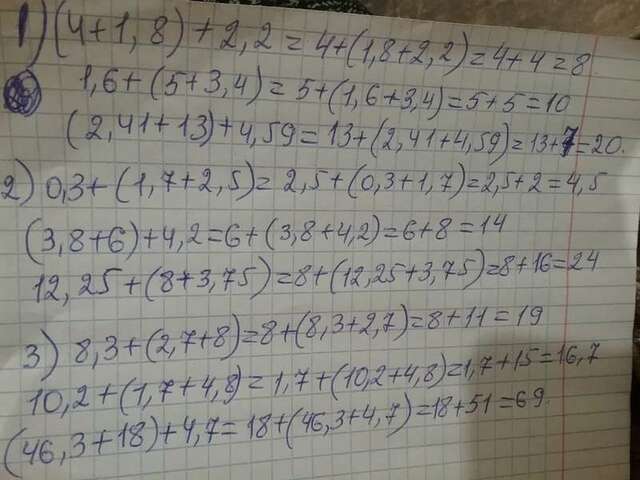 1) (4+1,8)+2,2=4+(1,8+2,2)=4+4=8
1,6+(5+3,4)=5+(1,6+3,4)=5+5=10
(2,41+13)+4,59=13+(2,41+4,59)=13+7=20.
2) 0,3+(1,7+2,5)=2,5+(0,3+1,7)=2,5+2=4,5
(3,8+6)+4,2=6+(3,8+4,2)=6+8=14
12,25+(8+3,75)=8+(12,25+3,75)=8+16=24
3) 8,3+(2,7+8)=8+(8,3+2,7)=8+11=19
10,2+(1,7+4,8)=1,7+(10,2+4,8)=1,7+15=16,7
(46,3+18)+4,7=18+(46,3+4,7)=18+51=69